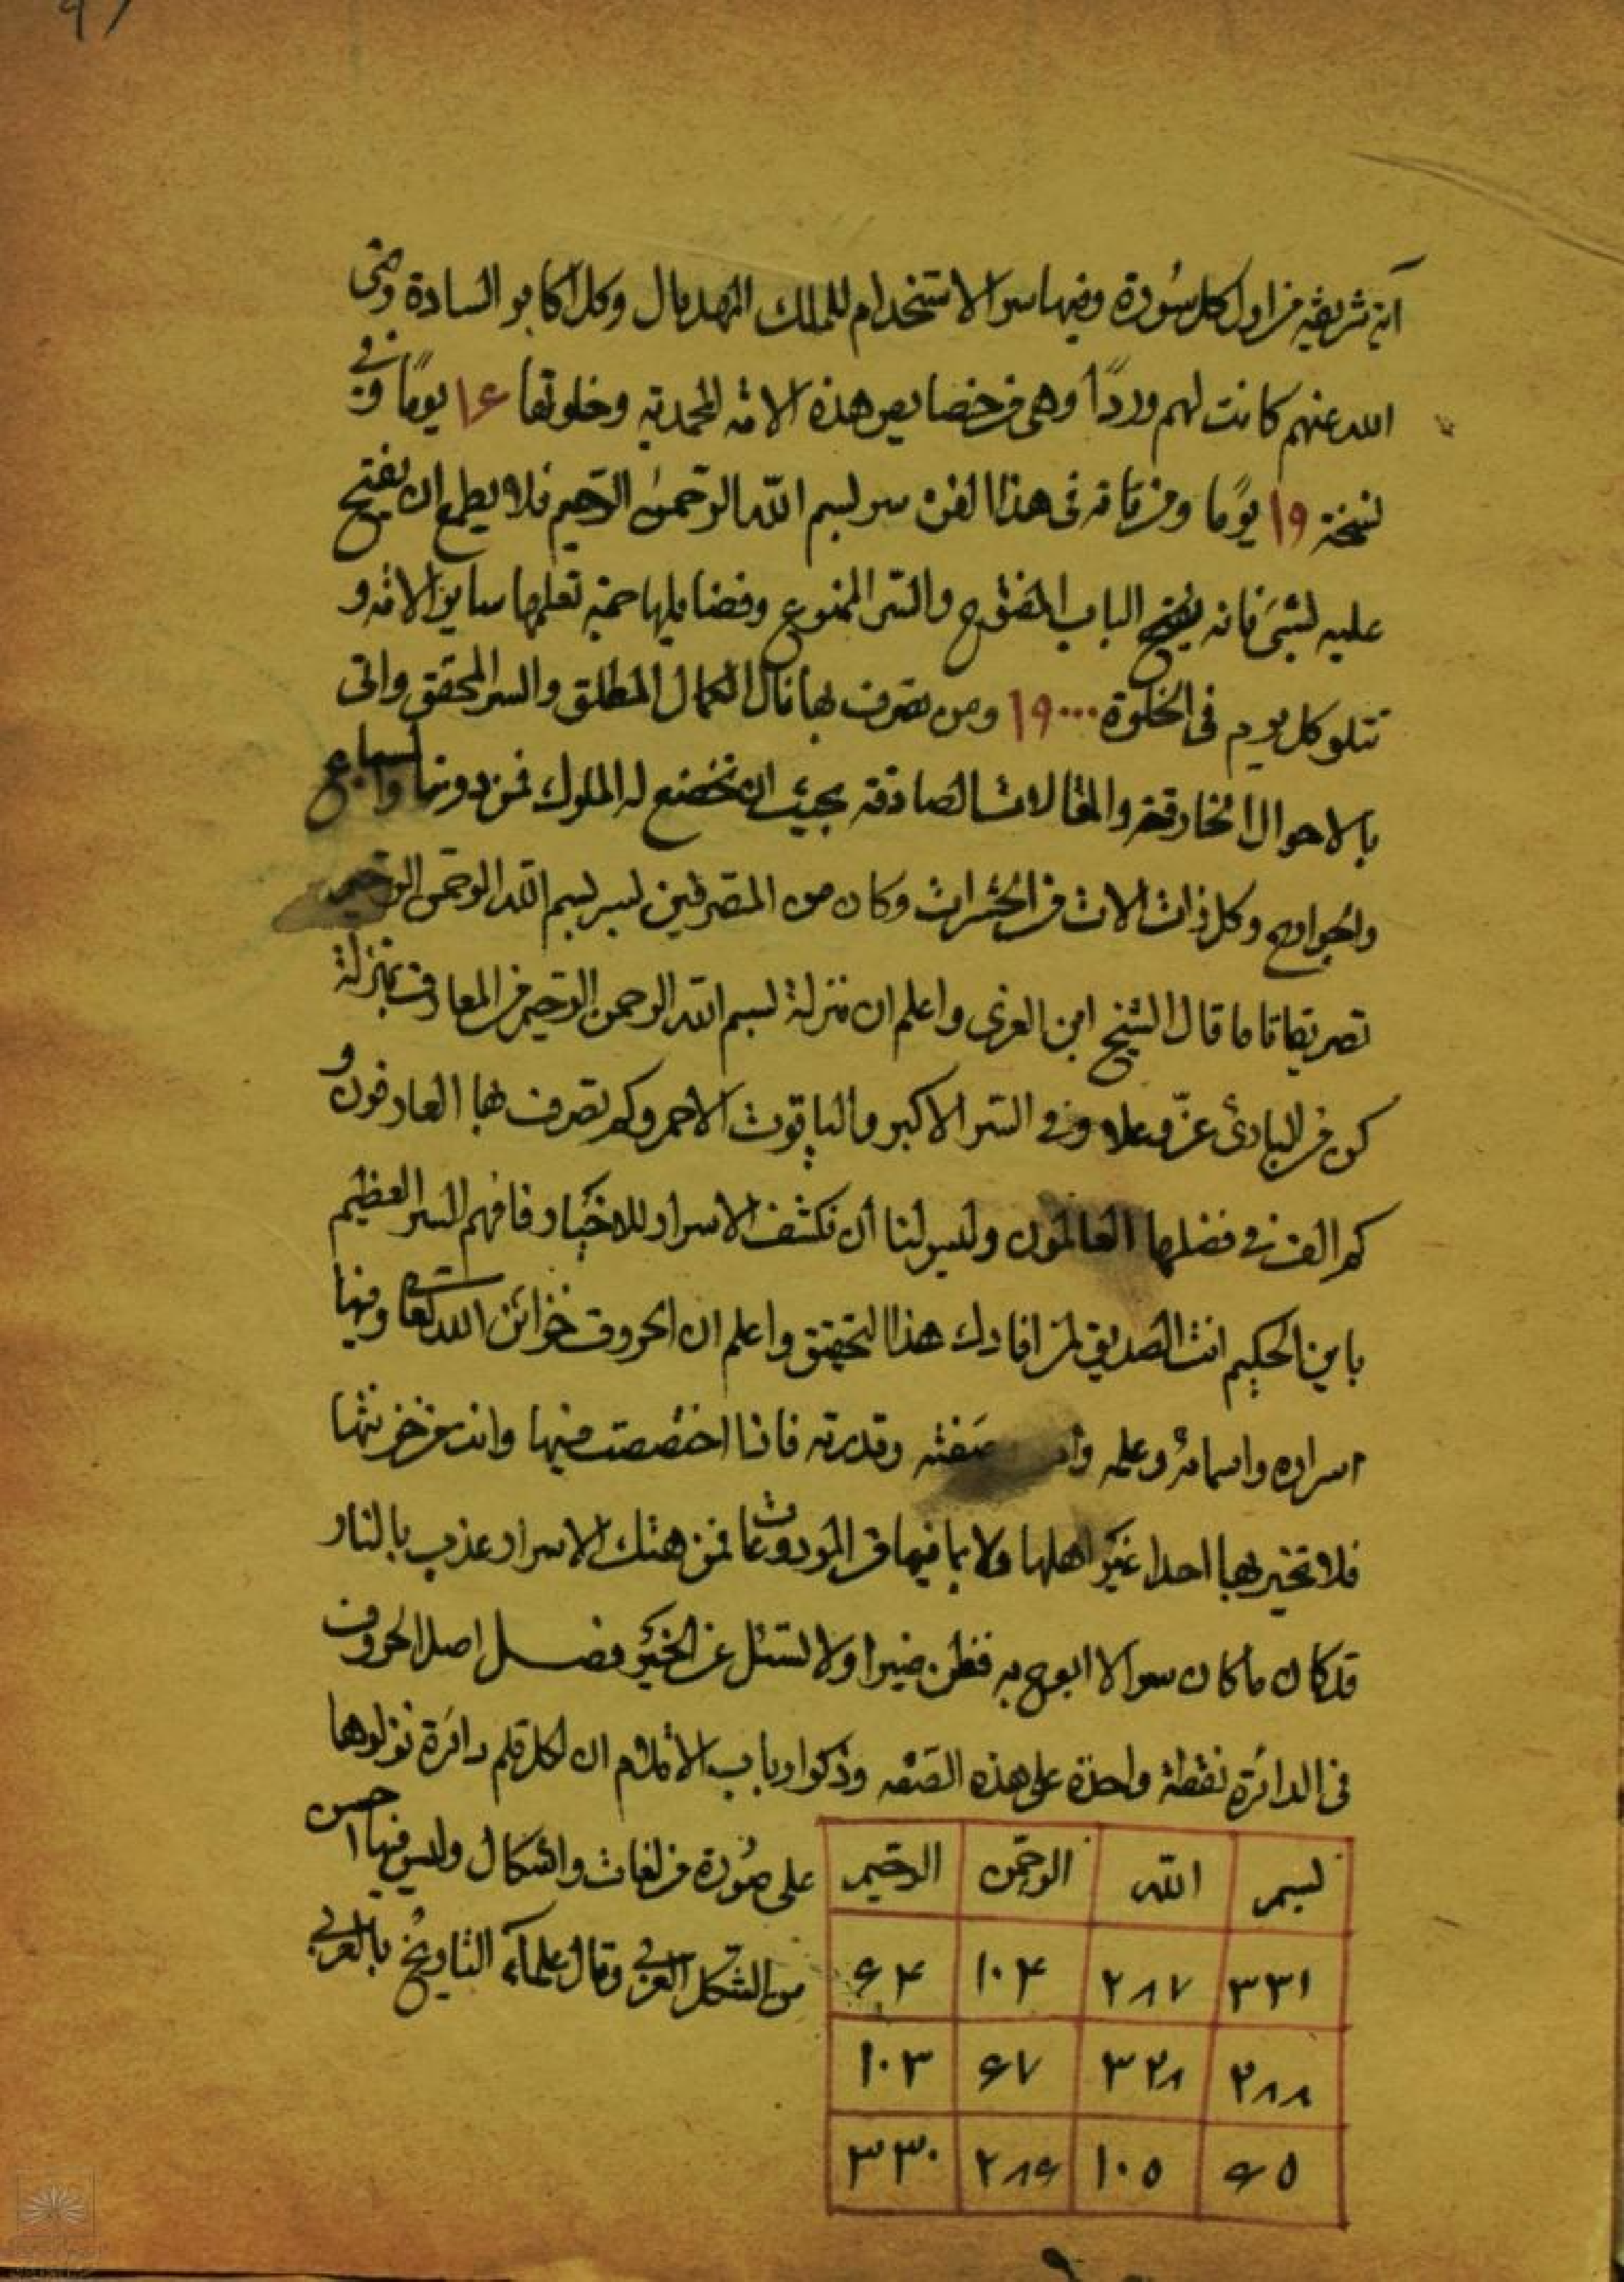 آية شريفة من اول كل سُورة وفيها سر الاستخدام للملك المهديال وكل اكابر السادة رضى
الله عنهم كانت لهم وردًا وهى من خصايص هذه الامة المحمدية وخلوتها ١٤ يومًا وفي
نسخة ١٩ يومًا ومن فاته فى هذا الفن سر بسم الله الرحمن الرحيم فلا يطمع ان يفتح
عليه بشئ فانه يفتح الباب المفتوح والسّر الممنوع وفضايلها جمة تعلمها ساير الامة و
تتلو كل يوم فى الخلوة ١٩٠٠٠ ومن تصرف بها نال الكمال المطلق والسر المحقق واتى
بالاحوال الخارقة والمقالات الصادقة بحيث ان تخضع له الملوك فمن دونها والسباع
والجوارح وكل ذات الاث من الحشرات وكان من المتصرفين بسر بسم الله الرحمن الرحيم
تصريفا تاما قال الشيخ ابن العربى واعلم ان منزلة بسم الله الرحمن الرحيم من العارف بمنزلة
كن من البارئ عزّ وعلا وفي السّر الاكبر والياقوت الاحمر وكم تصرف بها العارفون و
كم الف في فضلها العالمون وليس لنا ان نكشف الاسرار للاخيار فافهم السر العظيم
يا بن الحكيم انت الصديق لمن افادك هذا التحقيق واعلم ان الحروف خزائن الله تعالى وفيها
اسراره واسمائه وعلمه صفته وقدرته فاذا اختصصت فيها وانت من خزنتها
فلا تخبر بها احدا غير اهلها ولا بما فيها من المودوعات فمن هتك الاسرار عذب بالنار
قد كان ما كان سرا لا ابوح به فظن خيرا ولا تسئل عن الخبر فصل اصل الحروف
فى الدائرة نقطة واحدة على هذه الصّفه وذكر ارباب الاقلام ان لكل قلم دائرة نزلوها
على صُورة من لغات واشكال وليس فيها احسن
من الشكل العربي وقال علماء التاريخ بالعربي
بسم الله الرحمن الرحيم
٣٣١ ٢٨٧ ١٠٤ ٦٤
٢٨٨ ٣٢٨ ٦٧ ١٠٣
٦٥ ١٠٥ ٢٨٦ ٣٣٠